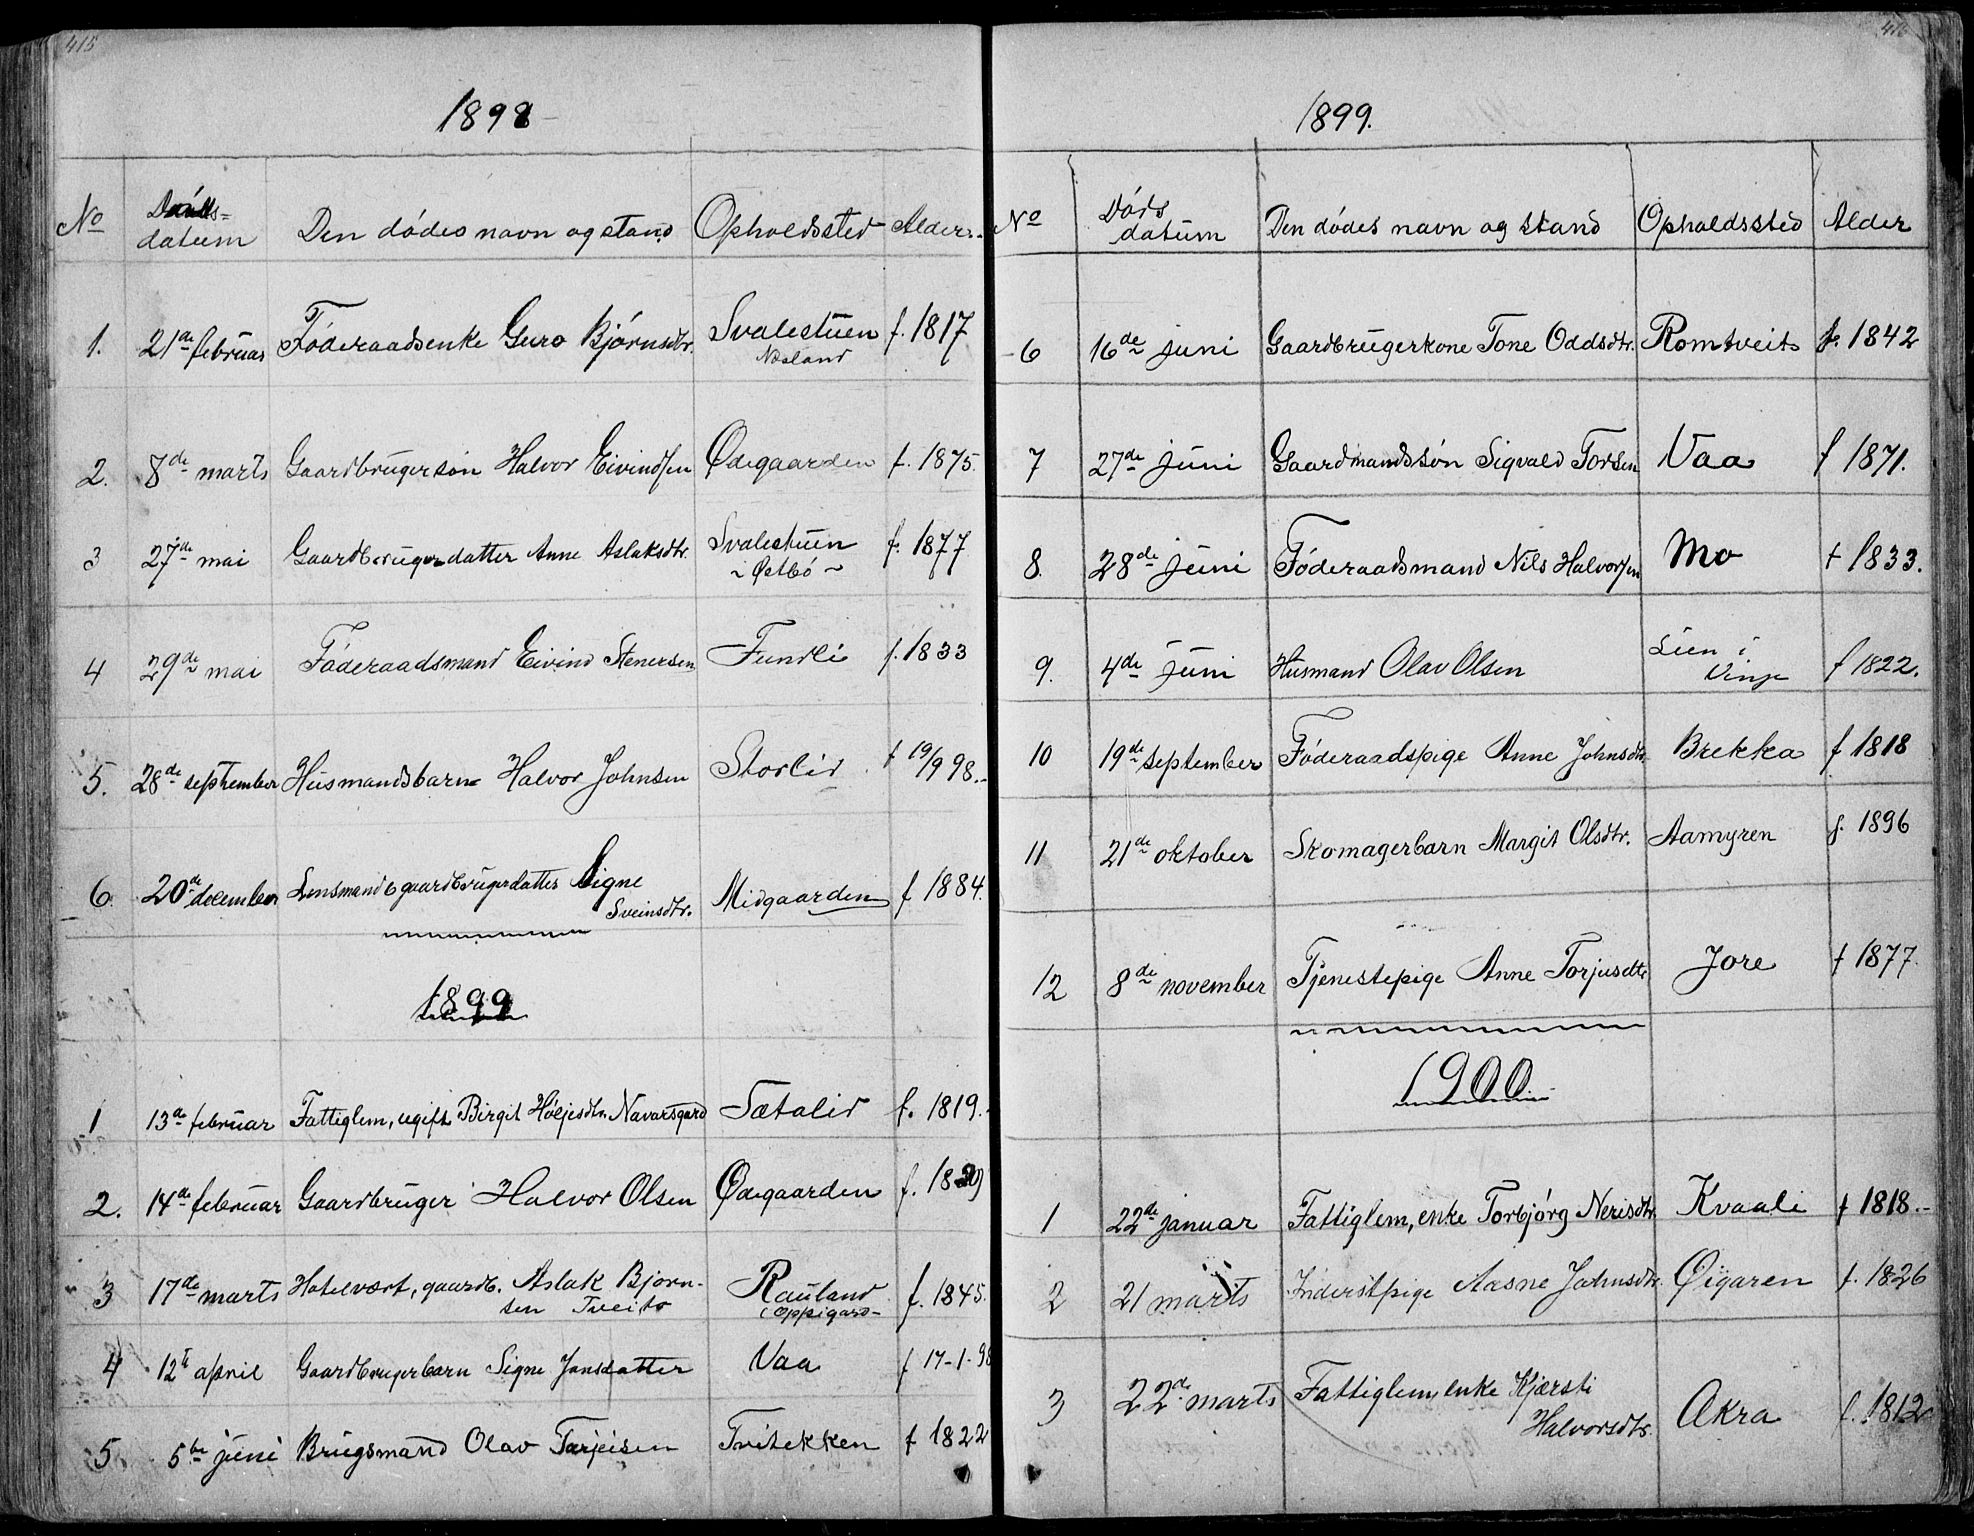 415
1898
No Døds-datum Den dødes navn og stand Opholdssted Alder.
1. 21de februar Føderaadsenke Guro Bjørnsdtr. Svalestuen f. 1817
Næsland
2. 8de marts Gaardbrugersøn Halvor Eivindsen Ødegaarden f. 1875.
3 27de mai Gaardbrugerdatter Anne Aslaksdtr Svalestuen f. 1877
~ Østbø ~
4 29de mai Føderaadsmand Eivind Stenersen Fundli f. 1833
5. 28de september Husmandsbarn Halvor Johnsen Storlid f 19/9 98.
6. 20de december Lensmand & gaardbrugerdatter Signe Sveinsdtr. Midgaarden f 1884.
1899
1 13de februar Fattiglem, ugift Birgit Høljesdtr. Navarsgard Sætalid f. 1819.
2. 14de februar Gaardbruger Halvor Olsen Ødegaarden f.
3 17de marts Hotelvært, gaardb. Aslak Bjørn-
sen Tveito Rauland f. 1845.
(Oppigard
4 12te april Gaardbrugerbarn Signe Jonsdatter Vaa f 17-1-98
5. 5te juni Brugsmand Olav Tarjeisen Tvitekken f 1822
416
1899.
No Døds datum Den dødes navn og stand Opholdssted Alder
6 16de juni Gaardbrugerkone Tone Oddsdtr. Romtveit f. 1842
7 27de juni Gaardmandssøn Sigvald Torsen Vaa f 1871.
8. 28de juni Føderaadsmand Nils Halvorsen Mo f 1833.
9. 4de juni Husmand Olav Olsen Lien i Vinje f 1822.
10 19de september Føderaadspige Anne Johnsdtr. Brekka f 1818
11 21de oktober Skomagerbarn Margit Olsdtr. Aamyren f. 1896
12 8de november Tjenestepige Anne Torjusdtr Jore f 1877.
1900
1 22de januar Fattiglem, enke Torbjørg Nerisdtr. Kvaali f 1818.-
2 21 marts Inderstpige Aasne Johnsdtr. Øigaren f. 1826
3 22de marts Fattiglem, enke Kjærsti
Halvorsdtr. Akra f. 1812